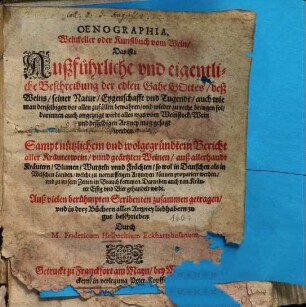 OENOGRAPHIA,
Weinkeller oder Kunstbuch vom Wein/
Das ist:
Außführliche vnd eigentli-
che Beschreibung der edlen Gabe GOttes / deß
Weins / seiner Natur / Eygenschafft vnd Tugendt / auch wie
man denselbigen vor allen zufällen bewahren vnd wider zu recht bringen sol/
darinnen auch angezeigt wirdt alles was vom Weinstock Wein
vnd desselbigen Artzney mag gesagt
werden.
Sampt nützlichem vnd wolgegründtem Bericht
aller Kräuterwein / vnnd gesetzten Weinen / auß allerhandt
Kräutern / Blumen / Wurtzeln vnnd Früchten / so wol in Deutschen als in
Welschen landen / welche zu notturfftigen Artzneyen können praepariert werden/
vnd zu welchen Zeiten im Brauch kommen. Darneben auch von Kräu-
ter Essig vnd Bier gehandelt wirdt.
Auß vielen berühmpten Scribenten zusammen getragen/
vnd in drey Büchern allen Artzney liebhabern zu
gut beschrieben
Durch
M. Fridericum Helbachium
Getruckt zu Franckfort am Mayn / bey
in verlegung Peter Kopff